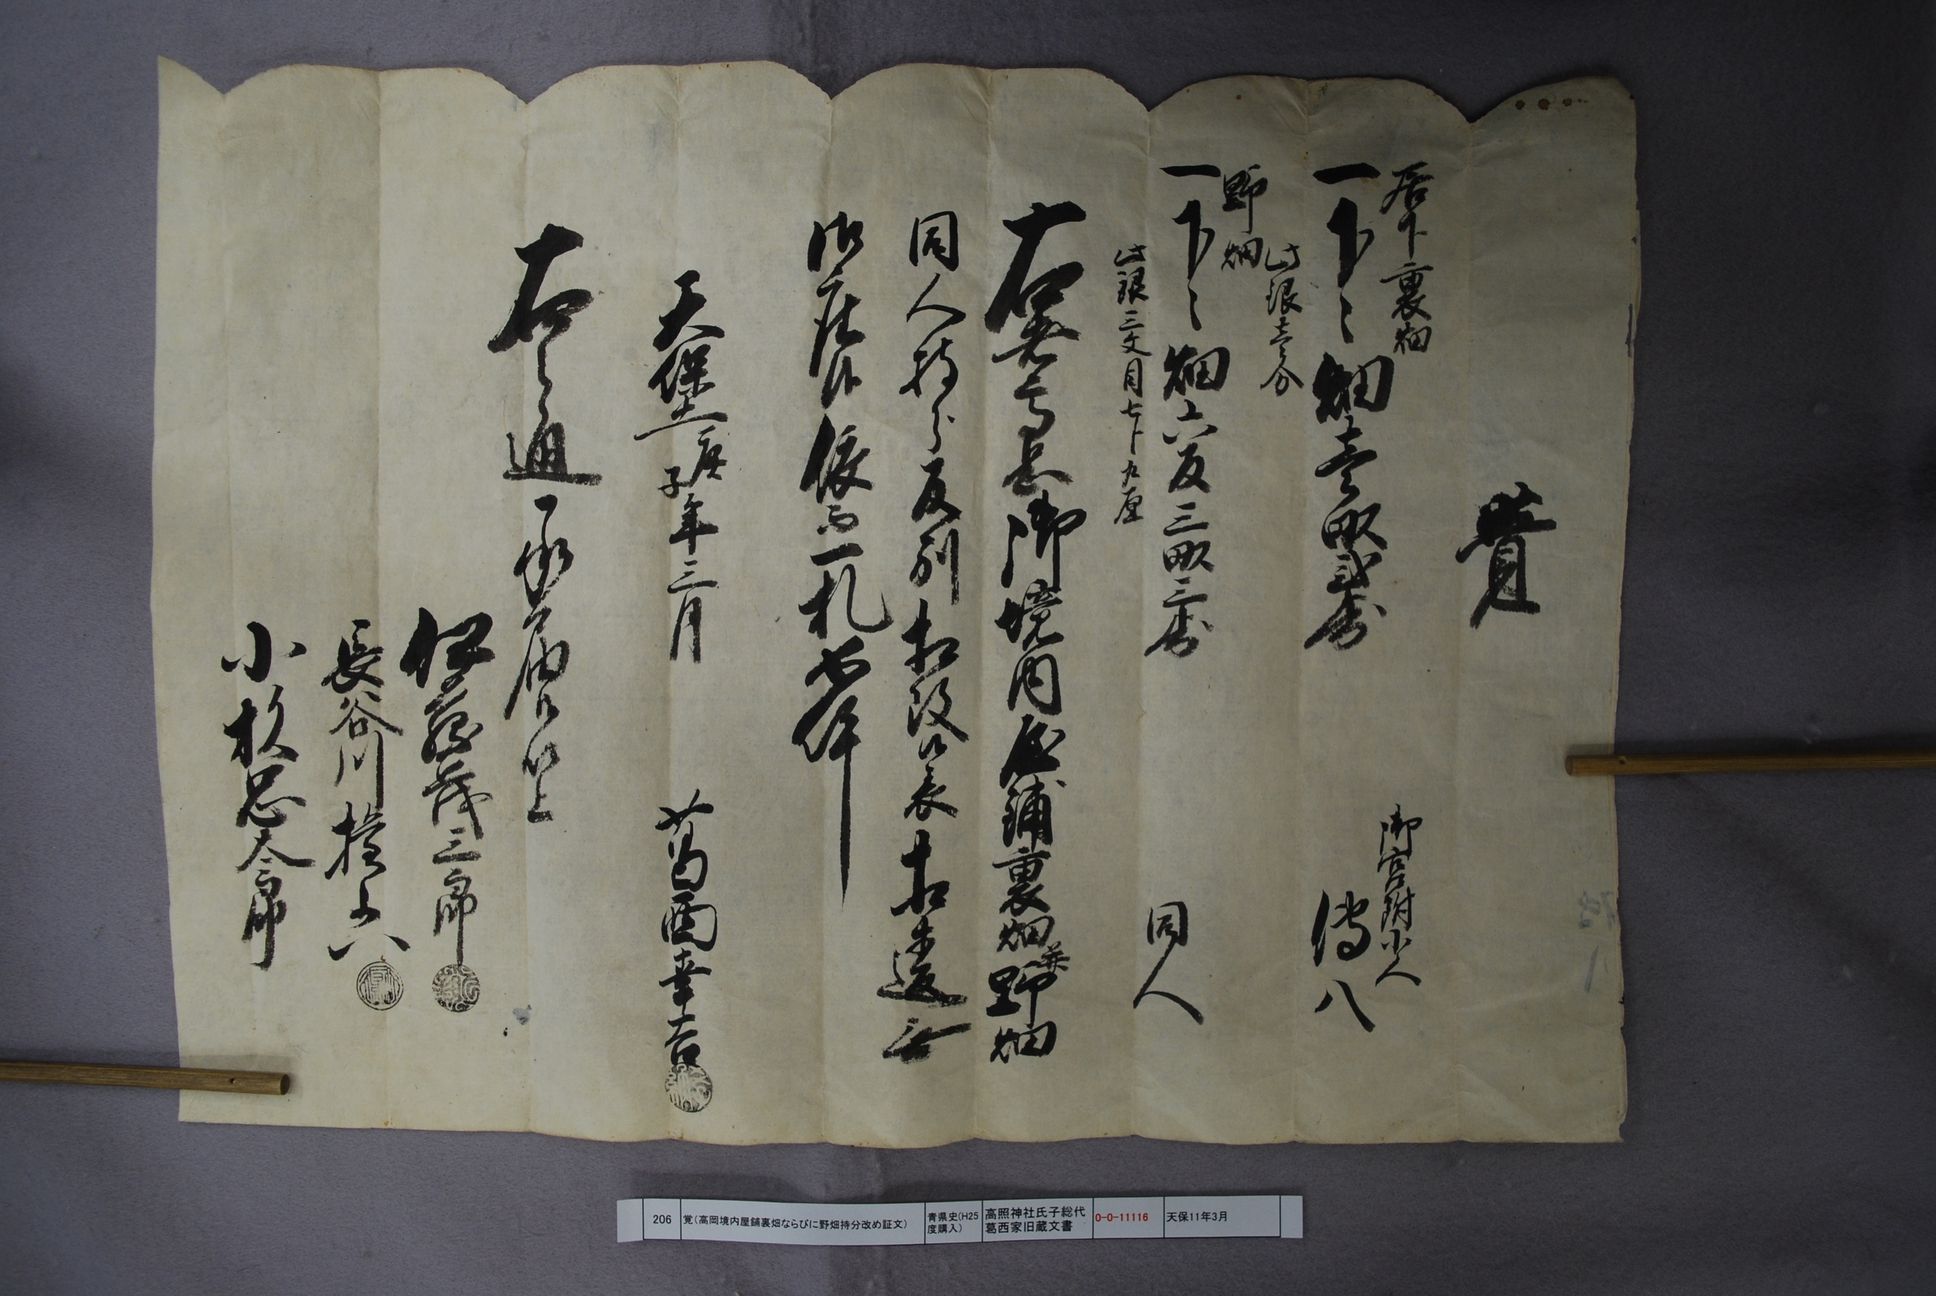 覚
居下裏畑
一下々畑壱畝弐歩
御宮附小人
傳八
此銀壱分
野畑
一下々畑六反三畝三歩
同人
此銀三文目七卜九厘
右者高岡御境内屋鋪裏畑并野畑
同人持分反別相改候表相違無
御座候依而一札如件
天保十一庚子年三月
葛西幸吉
右之通承届候以上
伊藤茂三郎
長谷川
小杉忠太郎
206
覚(高岡境内屋舗裏畑ならびに野畑持分改め証文)
青県史(H25
度購入)
高照神社氏子総代
葛西家旧蔵文書
0-0-11116
天保11年3月